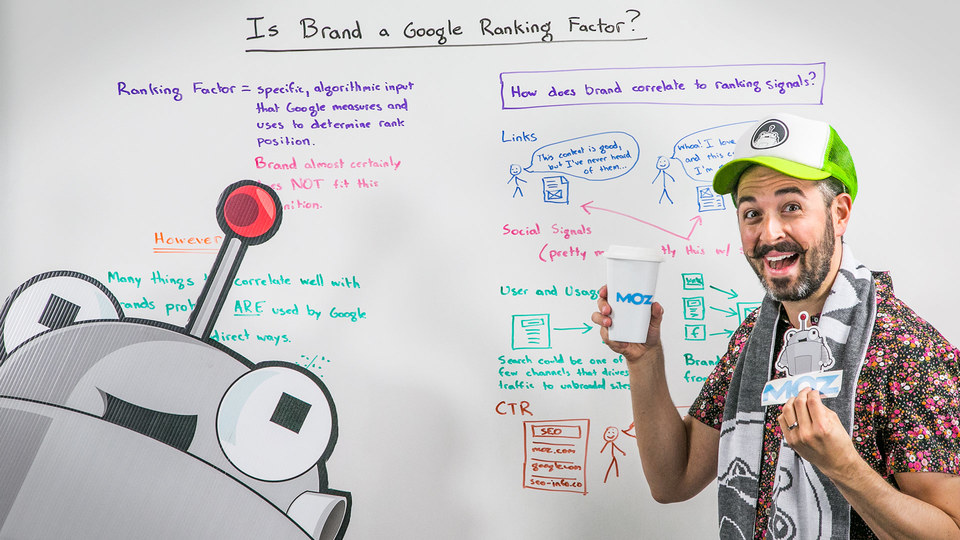 Is Brand a Google Ranking Factor?
Ranking Factor = specific, algorithmic input
that Google measures and
uses to determine rank
position.
Brand almost certainly
NOT fit this
However
Many things correlate well with
ARE used by Google
direct ways.
How does brand correlate to ranking signals?
Links
This content is good,
but I've never heard
of them...
Whoa! I love
and this
I'm
Social Signals
(pretty this w/
User and
Search could be one of
few channels that drives
traffic to unbranded sites
Brand
CTR
SEO
moz.com
google.com
seo-info.co
f
MOZ
MOZ